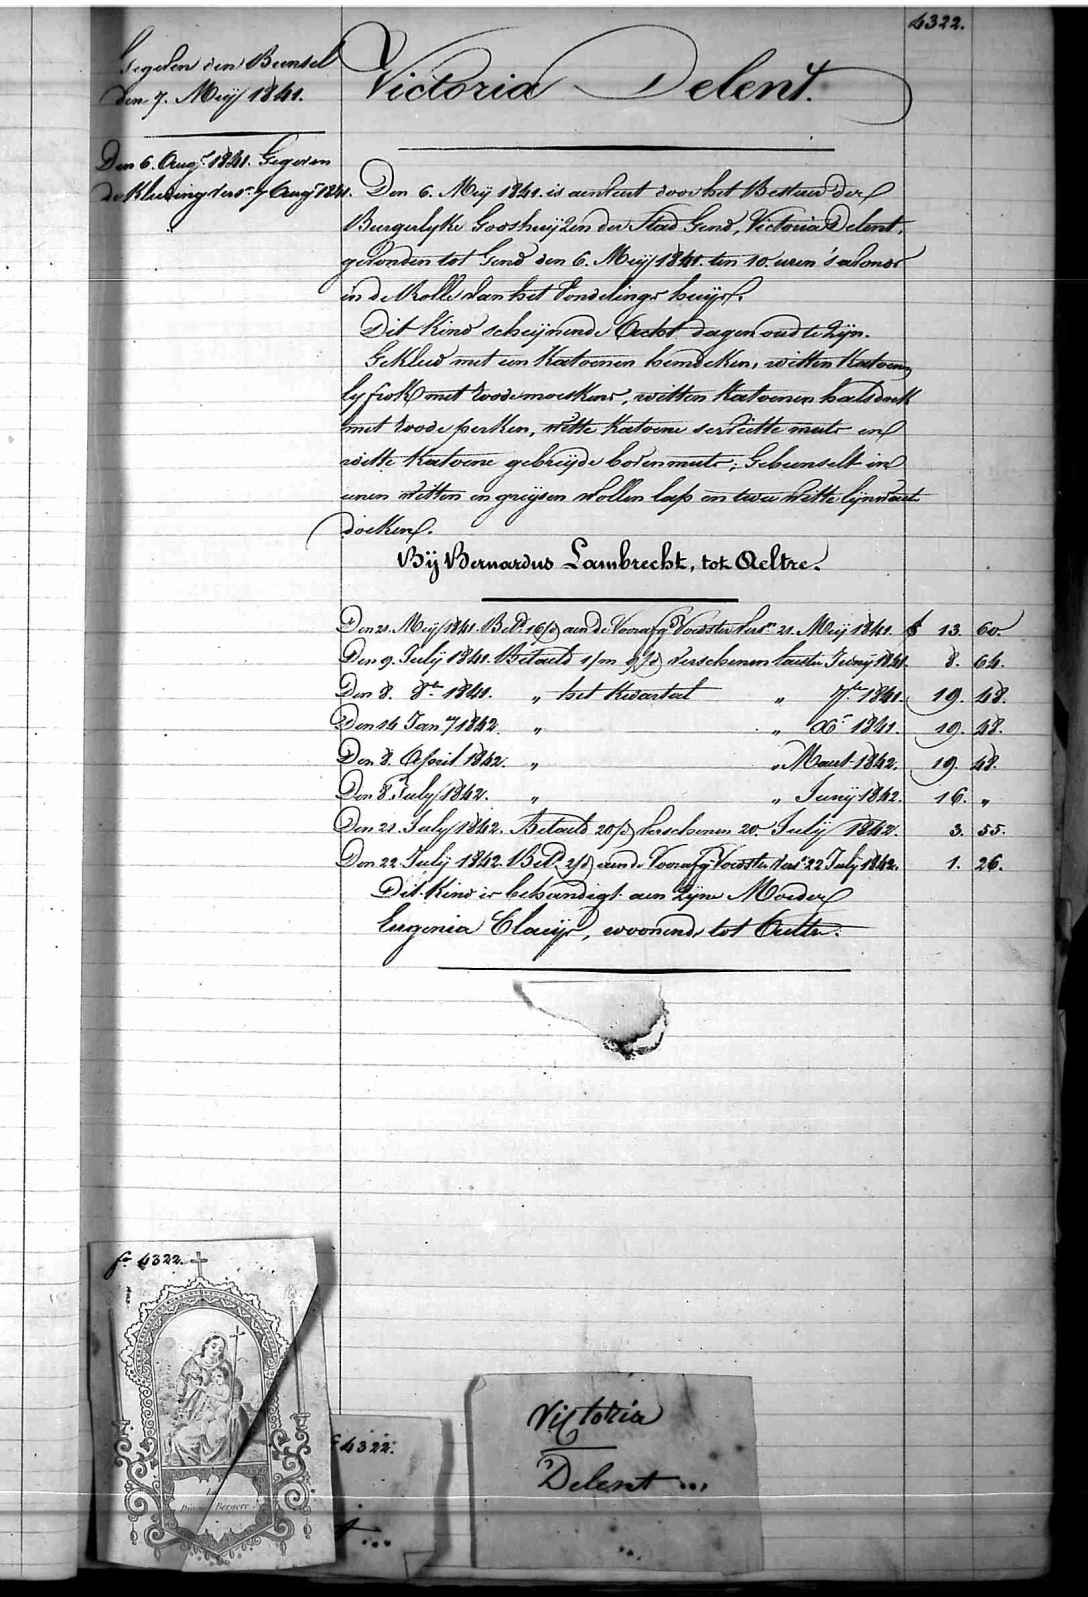 4322.
Gegeven den Bunsel
den 7. Meij 1841.
Victoria Delent.
Den 6. Augt. 1841. Gegeven
de Kleeding vers.n 7 Augt 1841.
Den 6. Meij 1841. is aenhert door het Bestuer der
Burgerlyke Godshuijzen der Stad Gend, Victoria Delent,
gevonden tot Gend den 6. Meij 1841. ten 10. uren 's avonds
in de Rolle van het Vondelings huijs.
Dit Kind scheijnende Acht dagen oud te Zijn.
Gekleed met een Katoenen hemdeken, witten Katoenen
lyfrok met roode moeskens, witten Katoenen halsdoek
met roode perken, witte Katoene serviette muts en
witte Katoene gebreijde bovenmuts; Gebunselt in
eenen witten en greijsen wollen lap en twee witte lynwaete
doeken.
Bij Bernardus Lambrecht, tot Aeltre.
Den 21. Meij 1841. Betd. 16/d aen de Voorafg.de Voedster vers.n 21. Meij 1841. f 13. 60.
Den 9. Julij 1841. Betaeld 1/m 9/d verschenen laesten Junij 1841. 8. 64.
Den 8. 8.re 1841. " het kwartael " 7.re 1841. 19. 48.
Den 14 Jan.y 1842. " " X.re 1841. 19. 48.
Den 8. April 1842. " " Maert 1842. 19. 48.
Den 8. July 1842. " " Junij 1842. 16. "
Den 21. July 1842. Betaeld 20/d Verschenen 20. Julij 1842. 3. 55.
Den 22. Julij 1842. Betd. 2/d aen de Voorafg.de Voedster vers.n 22 July 1842. 1. 26.
Dit Kind is behandigt aen Zijne Moeder
Eugenia Claeijs, woonende tot Aeltre.
f° 4322.
Bergère
f° 4322.
Victoria
Delent ...